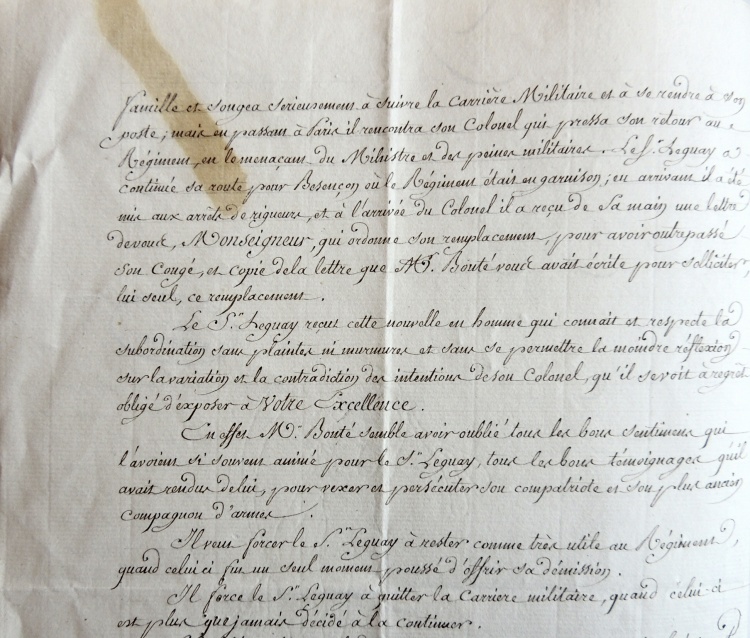 famille et songea serieusement à suivre la Carrière Militaire et à se rendre à son
poste; mais en passant à Paris il rencontra son Colonel qui pressa son retour au
Régiment, en le menaçant du Ministre et des peines militaires. Le Sr. Leguay a
continué sa route pour Besençon où le Régiment était en garnison; en arrivant il a été
mis aux arrêts de rigueurs, et à l'arrivée du Colonel il a reçu de sa main une lettre
de vous, Monseigneur, qui ordonne son remplacement, pour avoir outrepassé
son Congé, et copie de la lettre que Mr. Bouté vous avait écrite pour solliciter
lui seul, ce remplacement.
Le Sr. Leguay reçut cette nouvelle en homme qui connait et respecte la
subordination sans plaintes ni murmures et sans se permettre la moindre réflexion
sur la variation et la contradiction des intentions de son Colonel, qu'il se voit à regret
obligé d'exposer à Votre Excellence.
En effet Mr. Bouté semble avoir oublié tous les bons sentimens qui
l'avoient si souvent animé pour le Sr. Leguay, tous les bons témoignages qu'il
avait rendus de lui, pour vexer et persécuter son compatriote et son plus ancien
compagnon d'armes.
Il veut forcer le Sr. Leguay à rester comme très utile au Régiment,
quand celui ci fut un seul moment poussé d'offrir sa démission.
Il force le Sr. Leguay à quitter la Carriere militaire, quand celui-ci
est plus que jamais décidé à la continuer.